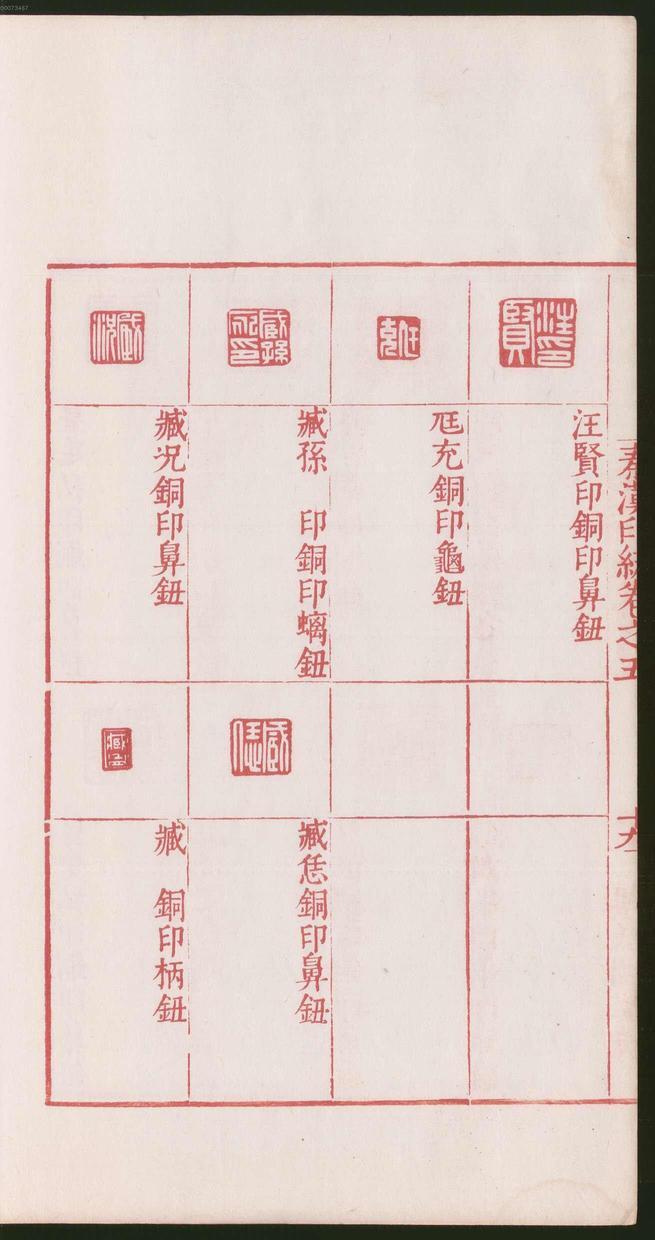 00073467
秦漢印統卷之五
十九
汪賢印銅印鼻鈕
尫充銅印龜鈕
臧孫 印銅印螭鈕
臧況銅印鼻鈕
臧恁銅印鼻鈕
臧 銅印柄鈕